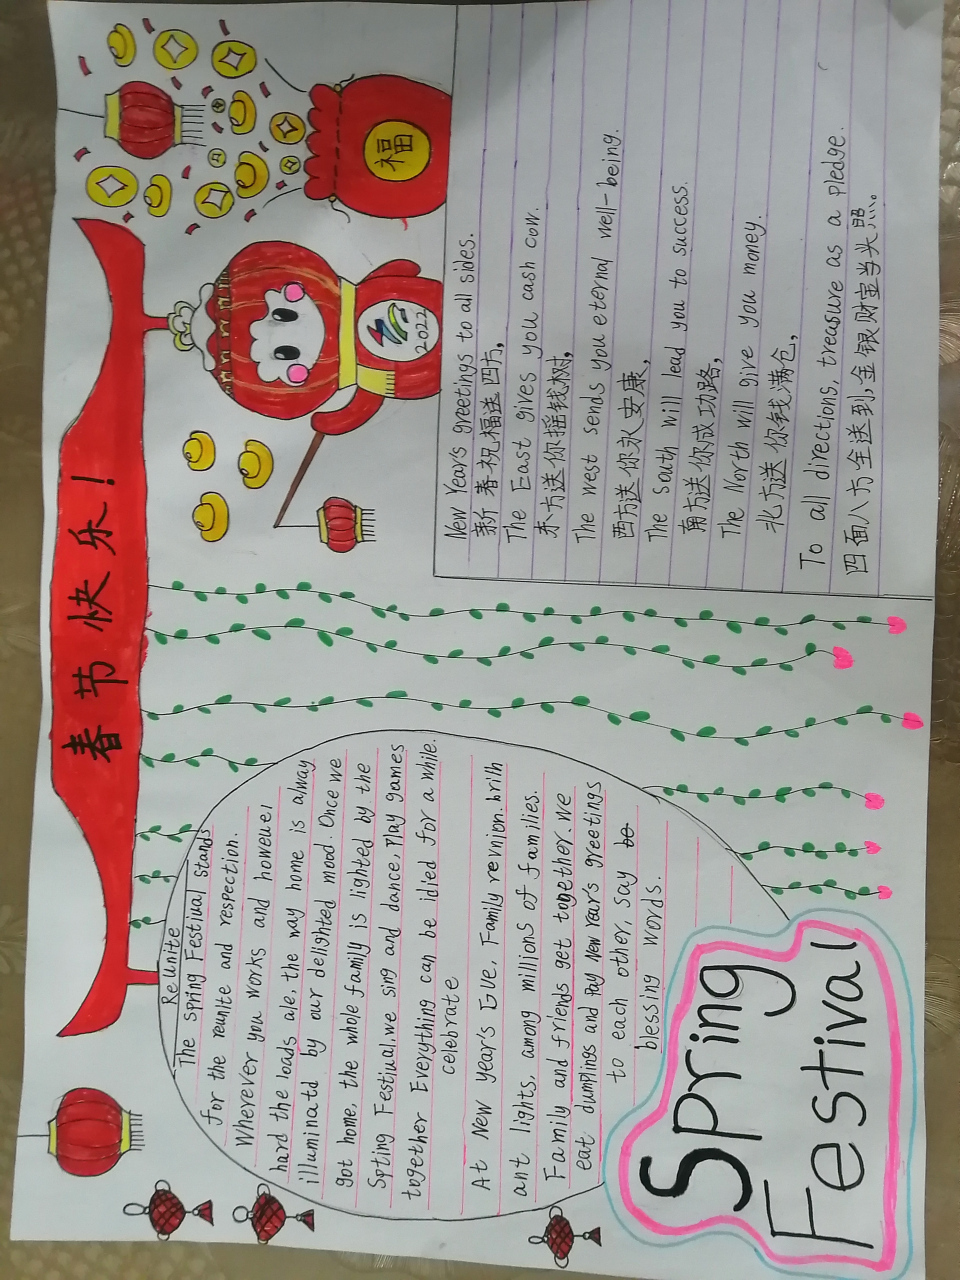 春节快乐！
福
2022
Reunite
The Spring Festival stands
for the reunite and respection.
Wherever you works and howeuer
hard the loads are, the way home is alway
illuminatd by our delighted mood. Once we
got home, the whole family is lighted by the
Spting Festiual, we sing and dance, play games
together Everything can be idied for a while.
celebrate
At New year's Eue, Family reunion brilh
ant lights, among millions of families.
Family and friends get together. we
eat dumplings and pay New Year's greetings
to each other, say be
blessing words.
Spring
Festival
New Year's greetings to all sides.
新春祝福送四方,
The East gives you cash cow.
东方送你摇钱树,
The west sends you eternal well-being.
西方送你永安康,
The south will lead you to success.
南方送你成功路,
The North will give you money.
北方送你钱满仓,
To all directions, treasure as a pledge.
四面八方全送到,金银财宝当头照。